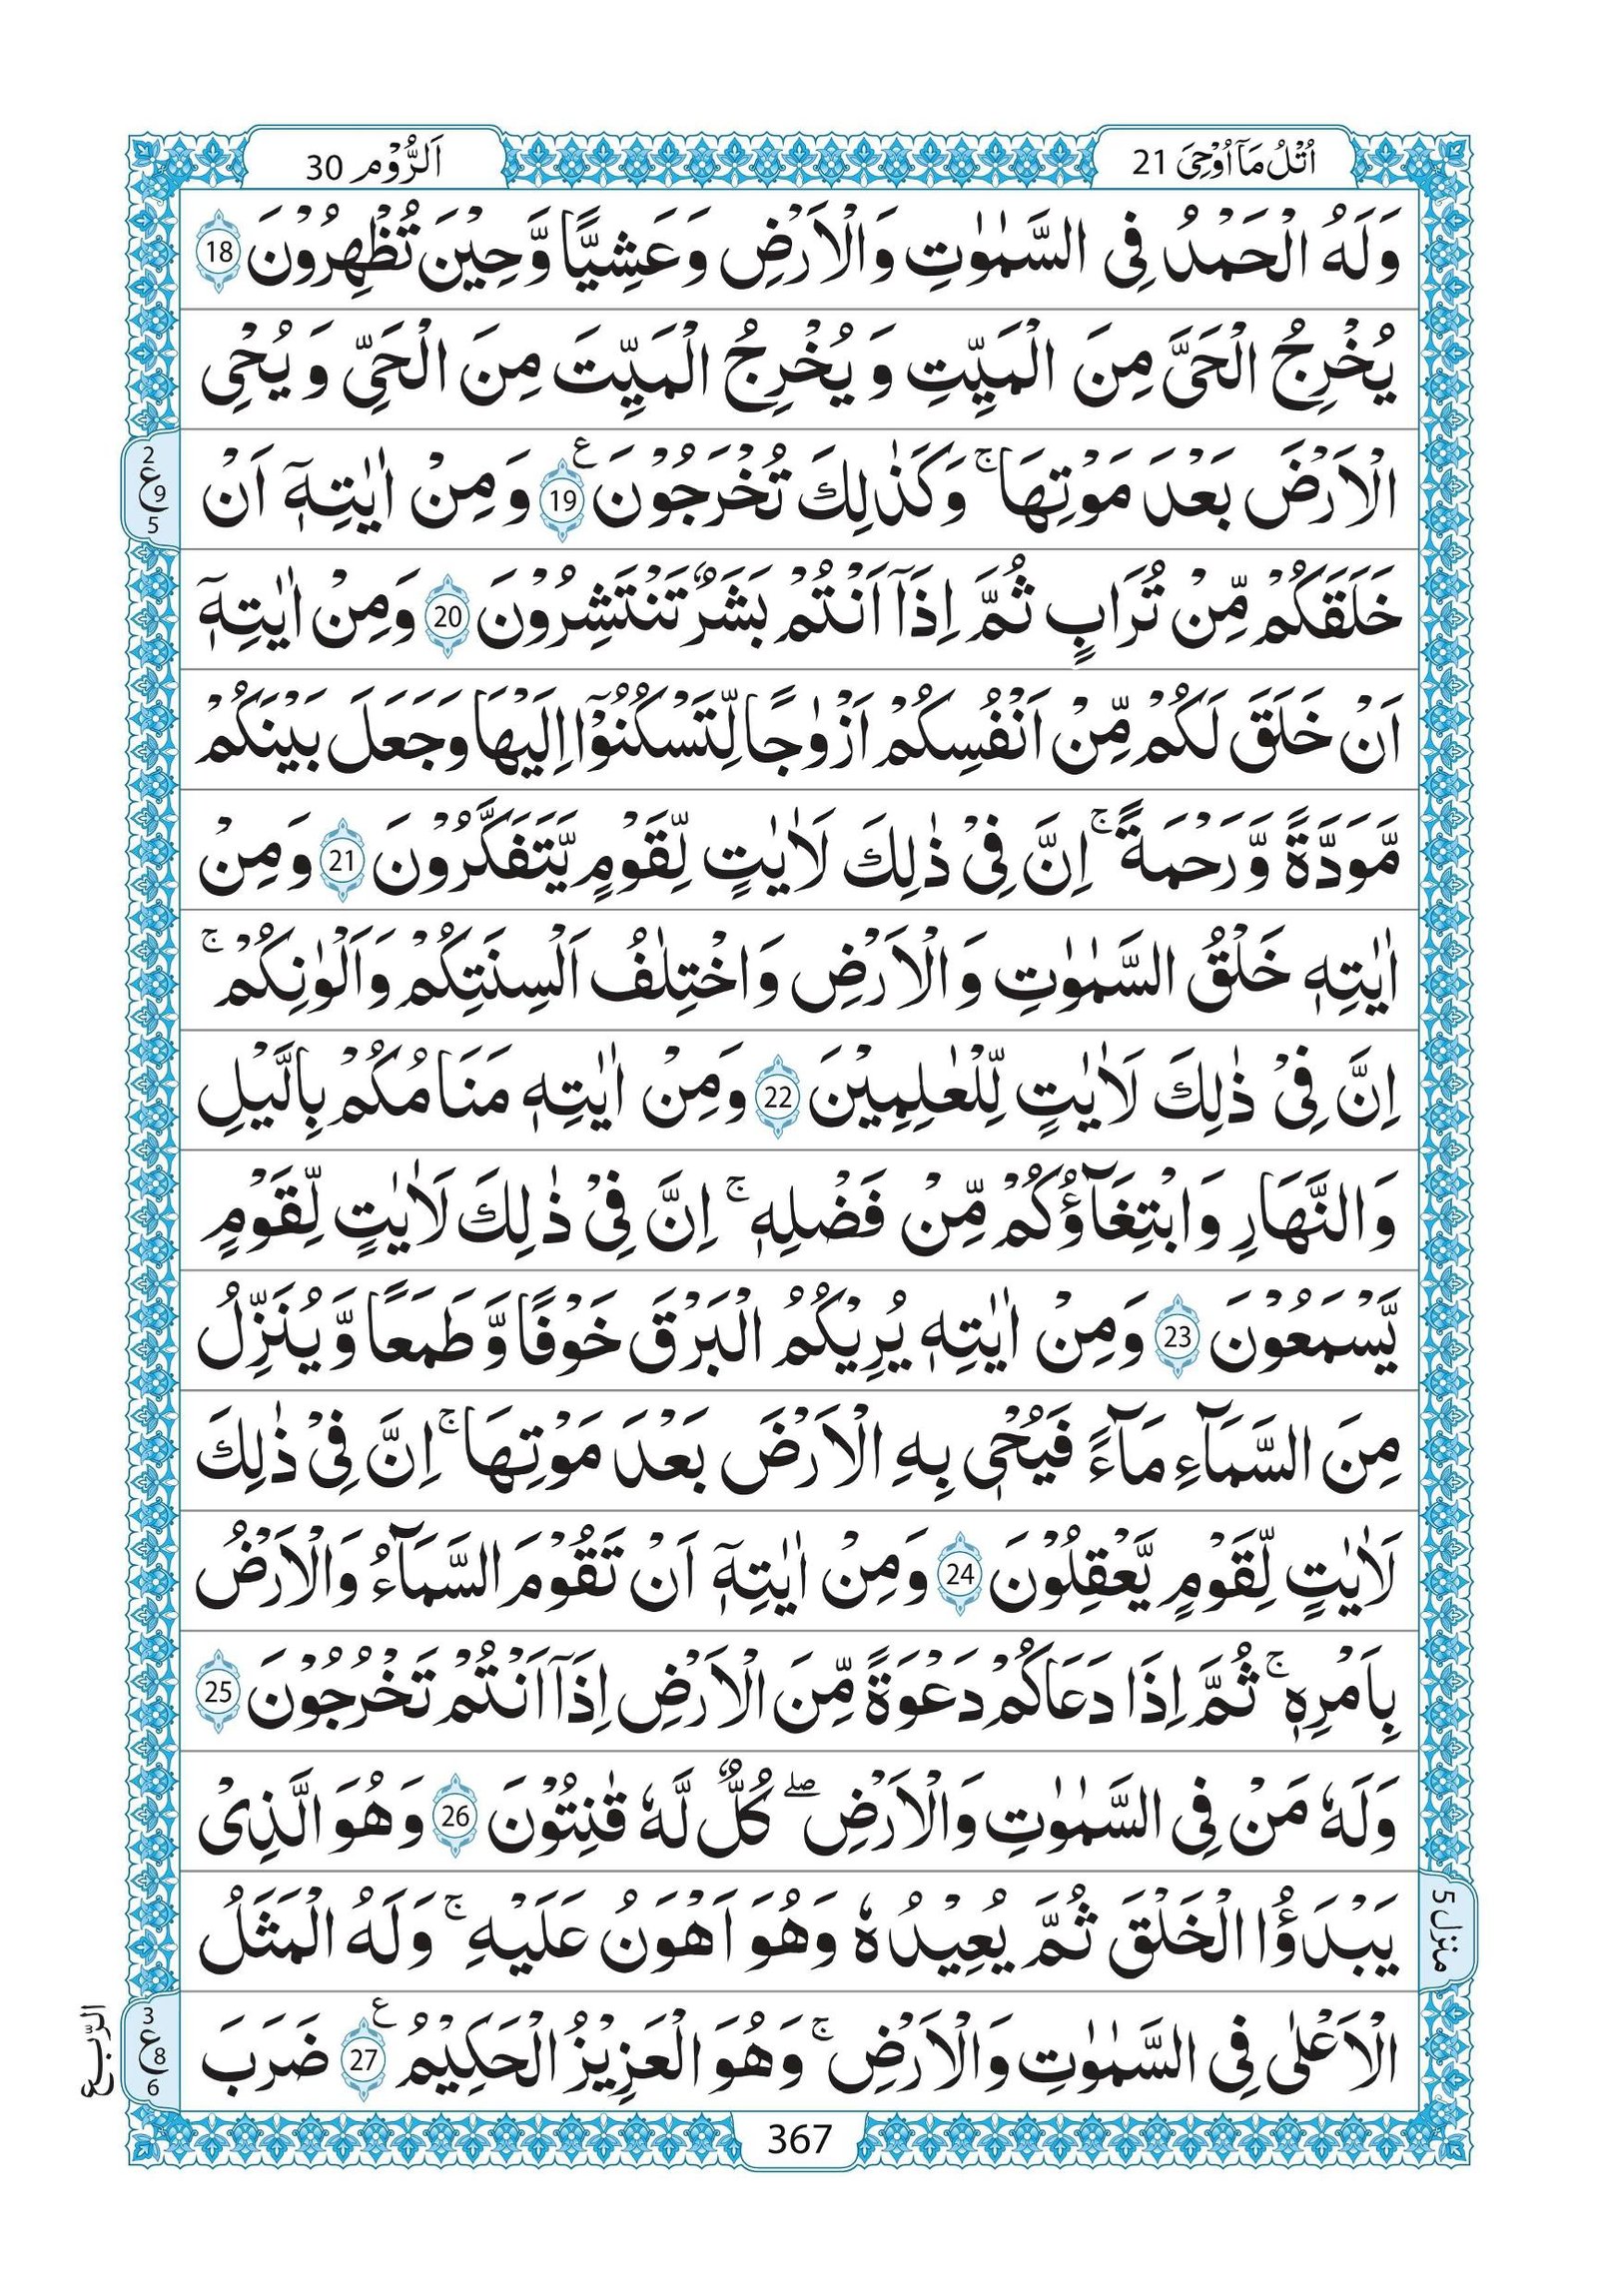 اُتْلُ مَآ اُوْحِیَ 21
اَلرُّوْم 30
وَلَهُ الْحَمْدُ فِی السَّمٰوٰتِ وَالْاَرْضِ وَعَشِیًّا وَّحِیْنَ تُظْهِرُوْنَ 18
یُخْرِجُ الْحَیَّ مِنَ الْمَیِّتِ وَ یُخْرِجُ الْمَیِّتَ مِنَ الْحَیِّ وَ یُحْیِ
الْاَرْضَ بَعْدَ مَوْتِهَا ۚ وَكَذٰلِكَ تُخْرَجُوْنَ ع 19 وَ مِنْ اٰیٰتِهٖۤ اَنْ
2 ع 9 5
خَلَقَكُمْ مِّنْ تُرَابٍ ثُمَّ اِذَاۤ اَنْتُمْ بَشَرٌ تَنْتَشِرُوْنَ 20 وَمِنْ اٰیٰتِهٖۤ
اَنْ خَلَقَ لَكُمْ مِّنْ اَنْفُسِكُمْ اَزْوٰجًا لِّتَسْكُنُوْۤا اِلَیْهَا وَجَعَلَ بَیْنَكُمْ
مَّوَدَّةً وَّرَحْمَةً ۚ اِنَّ فِیْ ذٰلِكَ لَاٰیٰتٍ لِّقَوْمٍ یَّتَفَكَّرُوْنَ 21 وَمِنْ
اٰیٰتِهٖ خَلْقُ السَّمٰوٰتِ وَالْاَرْضِ وَاخْتِلٰفُ اَلْسِنَتِكُمْ وَاَلْوٰنِكُمْ ۚ
اِنَّ فِیْ ذٰلِكَ لَاٰیٰتٍ لِّلْعٰلِمِیْنَ 22 وَمِنْ اٰیٰتِهٖ مَنَامُكُمْ بِالَّیْلِ
وَالنَّهَارِ وَابْتِغَآؤُكُمْ مِّنْ فَضْلِهٖ ۚ اِنَّ فِیْ ذٰلِكَ لَاٰیٰتٍ لِّقَوْمٍ
یَّسْمَعُوْنَ 23 وَمِنْ اٰیٰتِهٖ یُرِیْكُمُ الْبَرْقَ خَوْفًا وَّطَمَعًا وَّیُنَزِّلُ
مِنَ السَّمَآءِ مَآءً فَیُحْیٖ بِهِ الْاَرْضَ بَعْدَ مَوْتِهَا ۚ اِنَّ فِیْ ذٰلِكَ
لَاٰیٰتٍ لِّقَوْمٍ یَّعْقِلُوْنَ 24 وَمِنْ اٰیٰتِهٖۤ اَنْ تَقُوْمَ السَّمَآءُ وَالْاَرْضُ
بِاَمْرِهٖ ۚ ثُمَّ اِذَا دَعَاكُمْ دَعْوَةً مِّنَ الْاَرْضِ اِذَاۤ اَنْتُمْ تَخْرُجُوْنَ 25
وَلَهٗ مَنْ فِی السَّمٰوٰتِ وَالْاَرْضِ ۖ كُلٌّ لَّهٗ قٰنِتُوْنَ 26 وَهُوَ الَّذِیْ
یَبْدَؤُا الْخَلْقَ ثُمَّ یُعِیْدُهٗ وَهُوَ اَهْوَنُ عَلَیْهِ ۚ وَلَهُ الْمَثَلُ
منزل 5
الْاَعْلٰی فِی السَّمٰوٰتِ وَالْاَرْضِ ۚ وَهُوَ الْعَزِیْزُ الْحَكِیْمُ ع 27 ضَرَبَ
3 ع 8 6
الرّبع
367